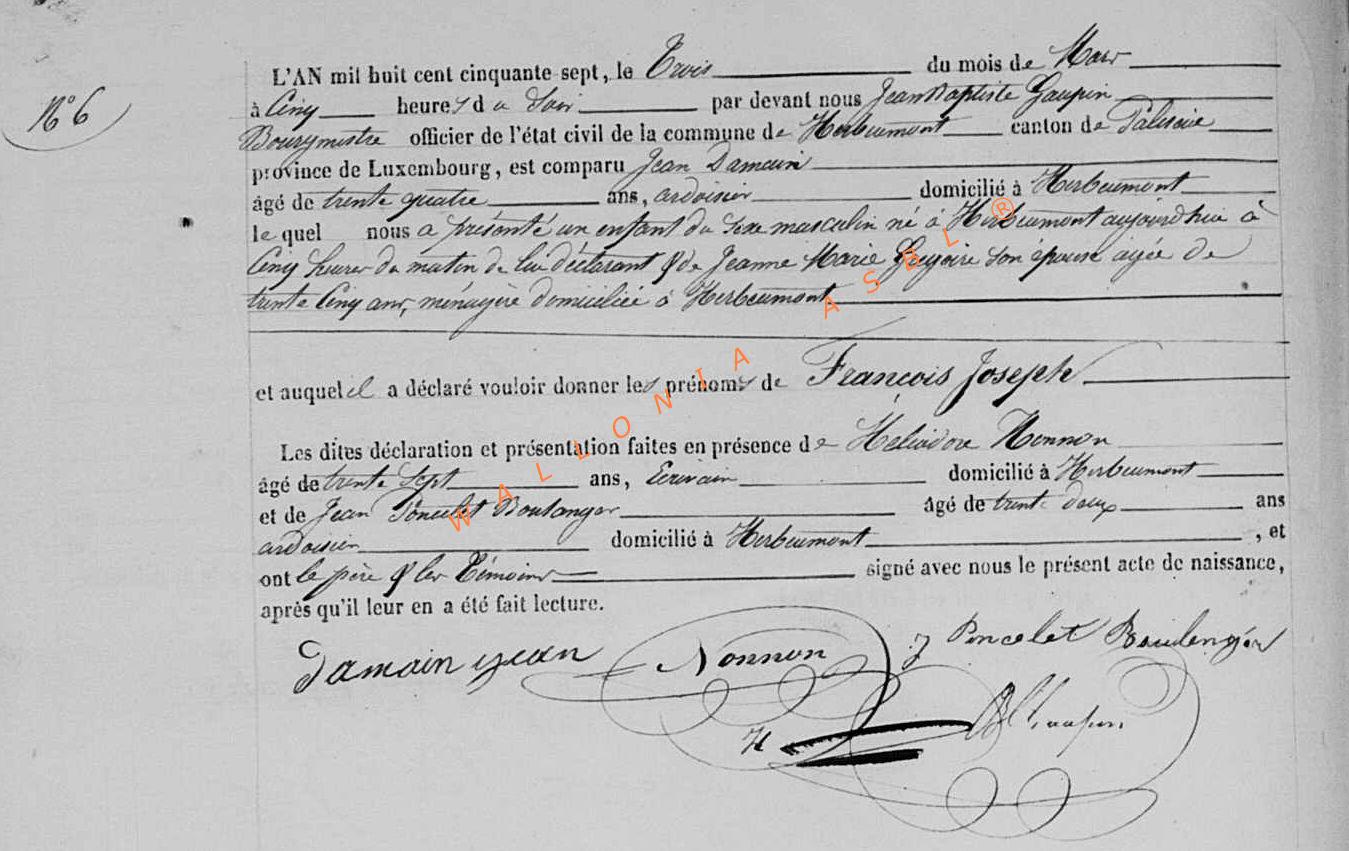 N° 6
L'AN mil huit cent cinquante sept, le Trois du mois de Mars
à Cinq heures du Soir par devant nous Jean Baptiste Gaupin
Bourgmestre officier de l'état civil de la commune de Herbeumont canton de Paliseul
province de Luxembourg, est comparu Jean Damain
âgé de trente quatre ans, ardoisier domicilié à Herbeumont
le quel nous a présenté un enfant du Sexe masculin né à Herbeumont aujourdhui à
Cinq heures du matin de lui déclarant & de Jeanne Marie Son épouse agée de
trente Cinq ans, ménagère domiciliée à Herbeumont
et auquel il a déclaré vouloir donner les prénoms de François Joseph
Les dites déclaration et présentation faites en présence de Héliodore Nonnon
âgé de trente Sept ans, Ecrivain domicilié à Herbeumont
et de Jean Poncelet Boulanger âgé de trente deux ans
ardoisier domicilié à Herbeumont, et
ont le père & les Témoins signé avec nous le présent acte de naissance,
après qu'il leur en a été fait lecture.
Damain jean Nonnon J Poncelet Boulenger
H
WALLONIA ASBL ®